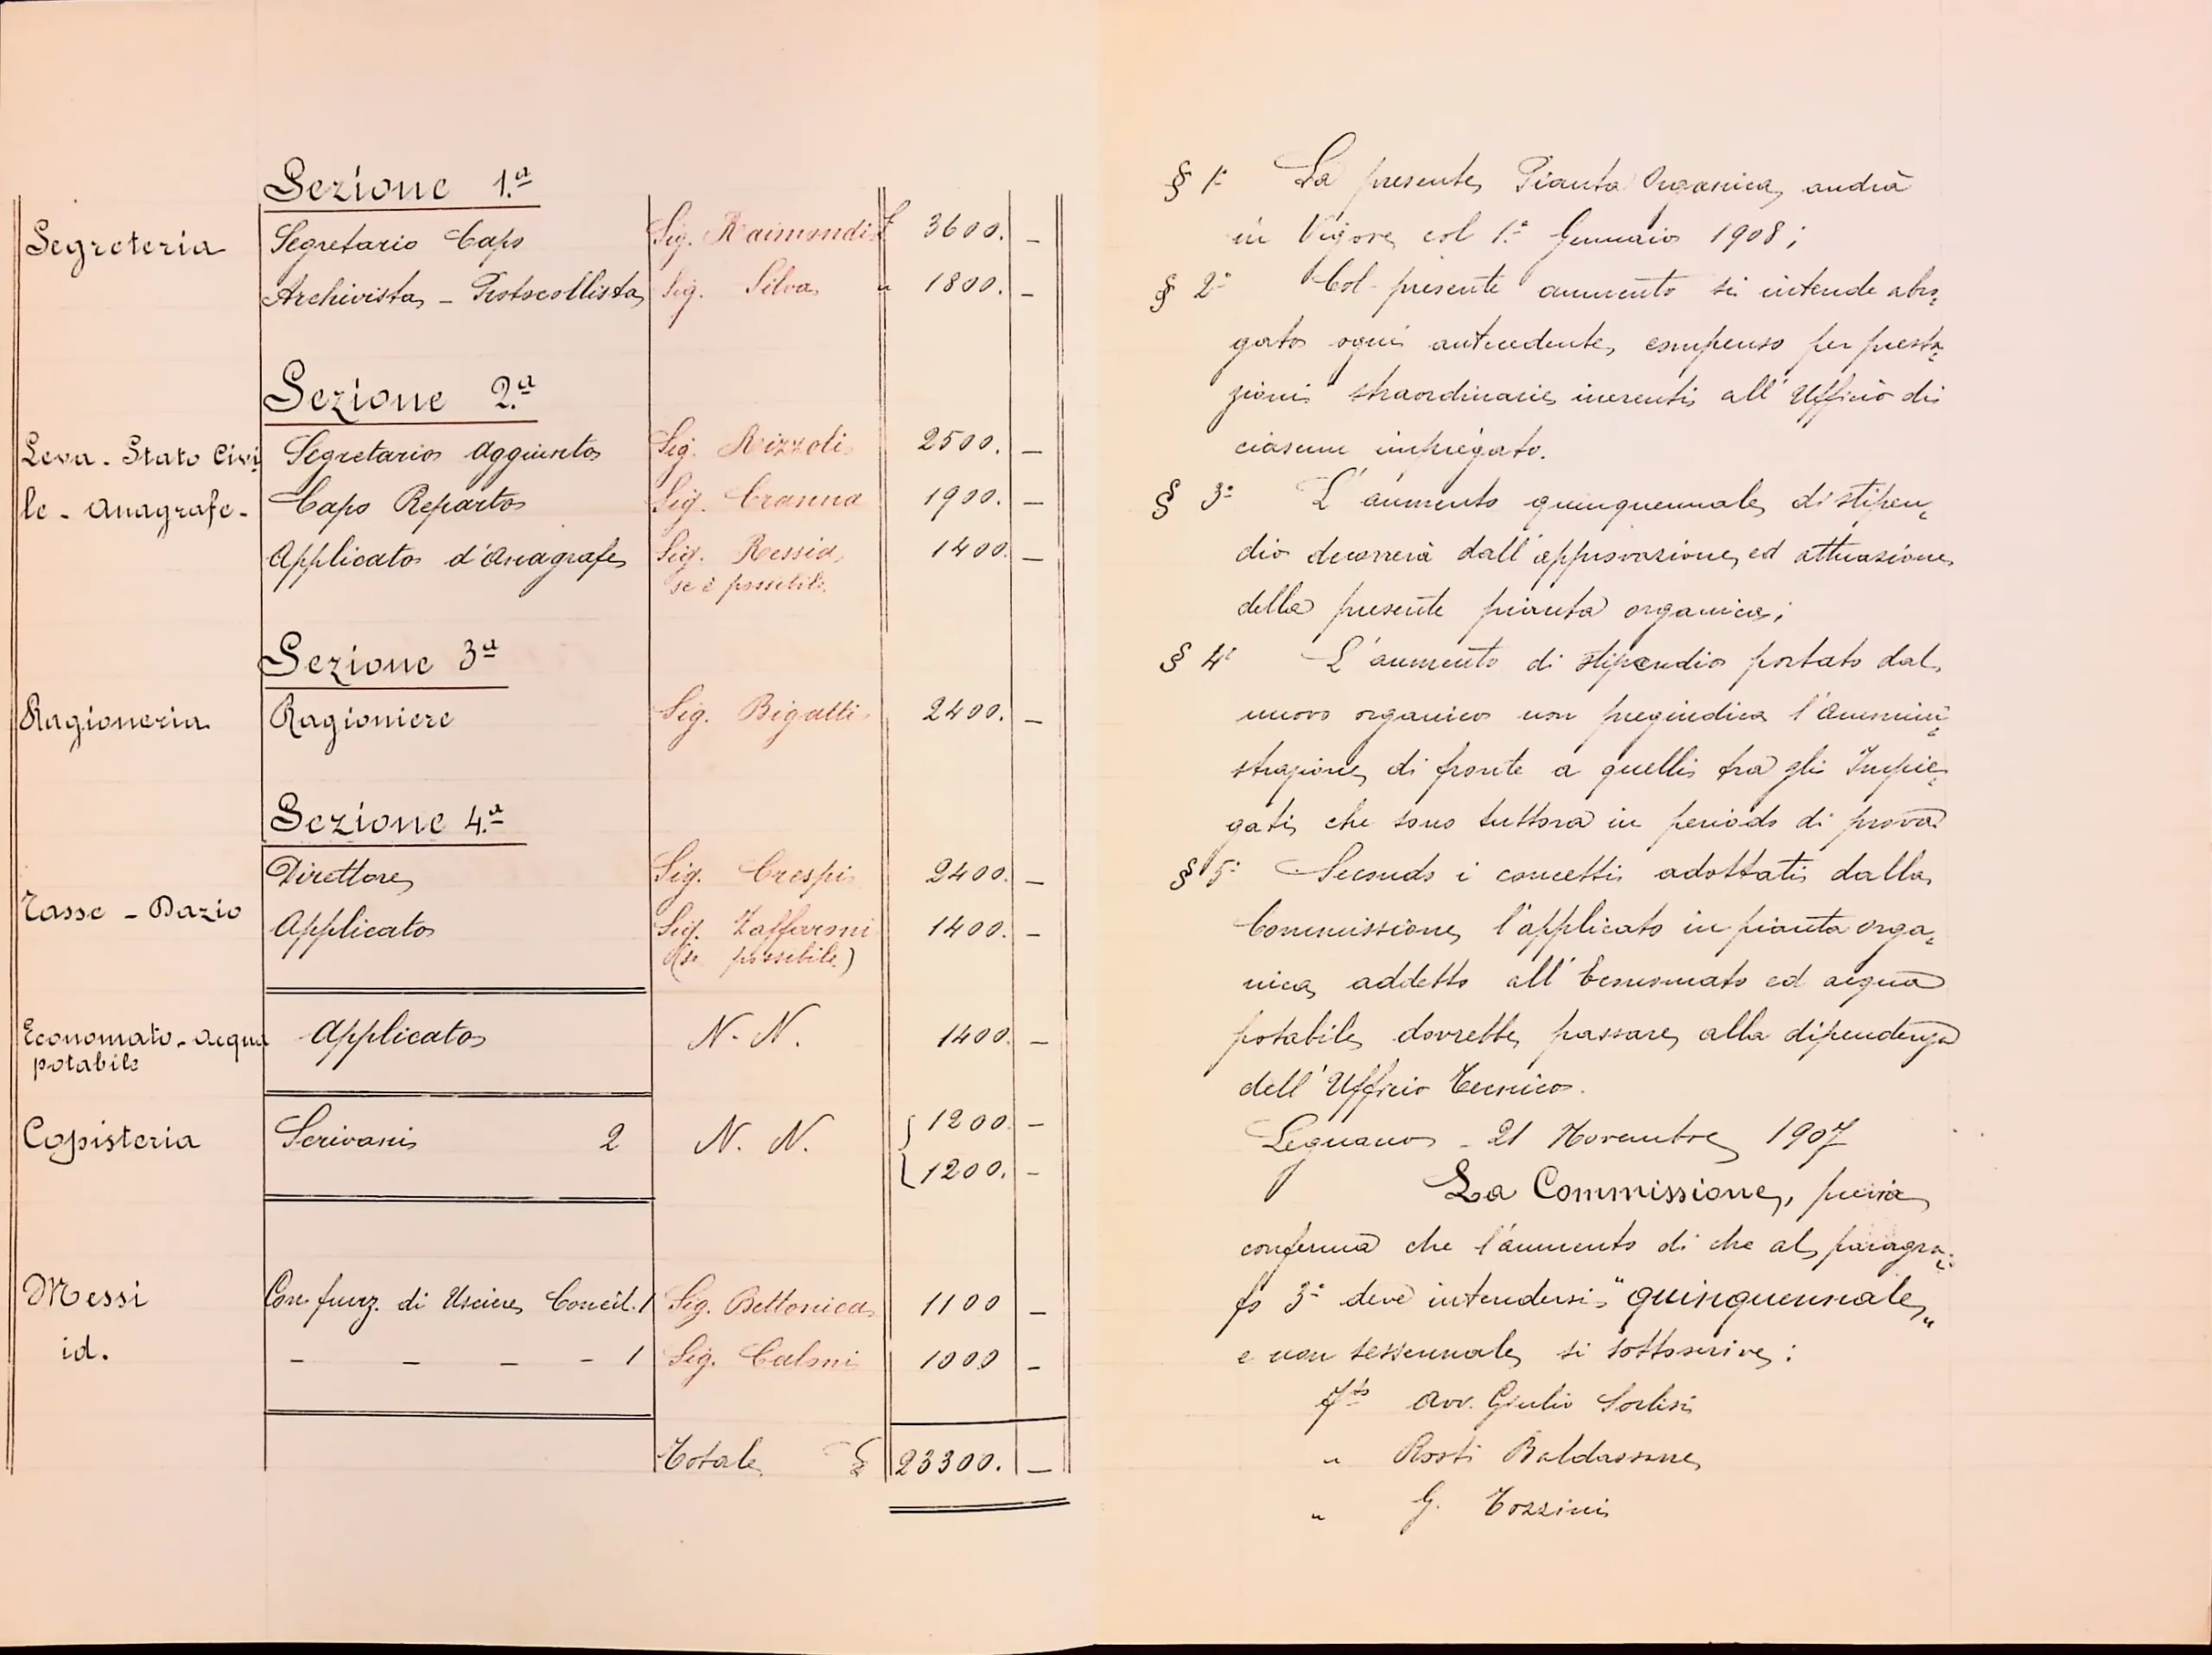 Sezione 1.ª
Segreteria Segretario Capo Sig. Raimondi £ 3600. –
Archivista – Protocollista Sig. Silva " 1800. –
Sezione 2.ª
Leva - Stato Civi Segretario Aggiunto Sig. Rizzoli 2500. –
le - Anagrafe - Capo Reparto Sig. Cranna 1900. –
Applicato d'Anagrafe Sig. Ressia 1400. –
se è possibile
Sezione 3ª
Ragioneria Ragioniere Sig. Bigatti 2400. –
Sezione 4.ª
Direttore Sig. Crespi 2400. –
Tasse – Dazio
Applicato Sig. Zaffaroni 1400. –
(se possibile)
Economato - Acqua Applicato N. N. 1400. –
potabile
Copisteria Scrivani 2 N. N. 1200. –
1200. –
Messi Con funz. di Usciere Concil. 1 Sig. Bettonica 1100 –
id. – – – – 1 Sig. Caloni 1000 –
Totale £ 23300. –
§ 1° La presente Pianta Organica andrà
in Vigore col 1.° Gennaio 1908;
§ 2° Col presente aumento si intende abro=
gato ogni antecedente compenso per presta=
zioni straordinarie inerenti all'Ufficio di
ciascun impiegato.
§ 3° L'aumento quinquennale di stipen=
dio decorrerà dall'approvazione ed attuazione
della presente pianta organica;
§ 4° L'aumento di stipendio portato dal
nuovo organico non pregiudica l'Ammini=
strazione di fronte a quelli tra gli Impie=
gati che sono tuttora in periodo di prova
§ 5° Secondo i concetti adottati dalla
Commissione l'applicato in pianta orga=
nica addetto all'Economato ed acqua
potabile dovrebbe passare alla dipendenza
dell'Ufficio Tecnico.
Legnano – 21 Novembre 1907
La Commissione, previa
conferma che l'aumento di che al paragra=
fo 3° deve intendersi "quinquennale"
e non sessennale si sottoscrive:
Fto Avv. Giulio
" Rosti Baldassare
" G. Tozzini